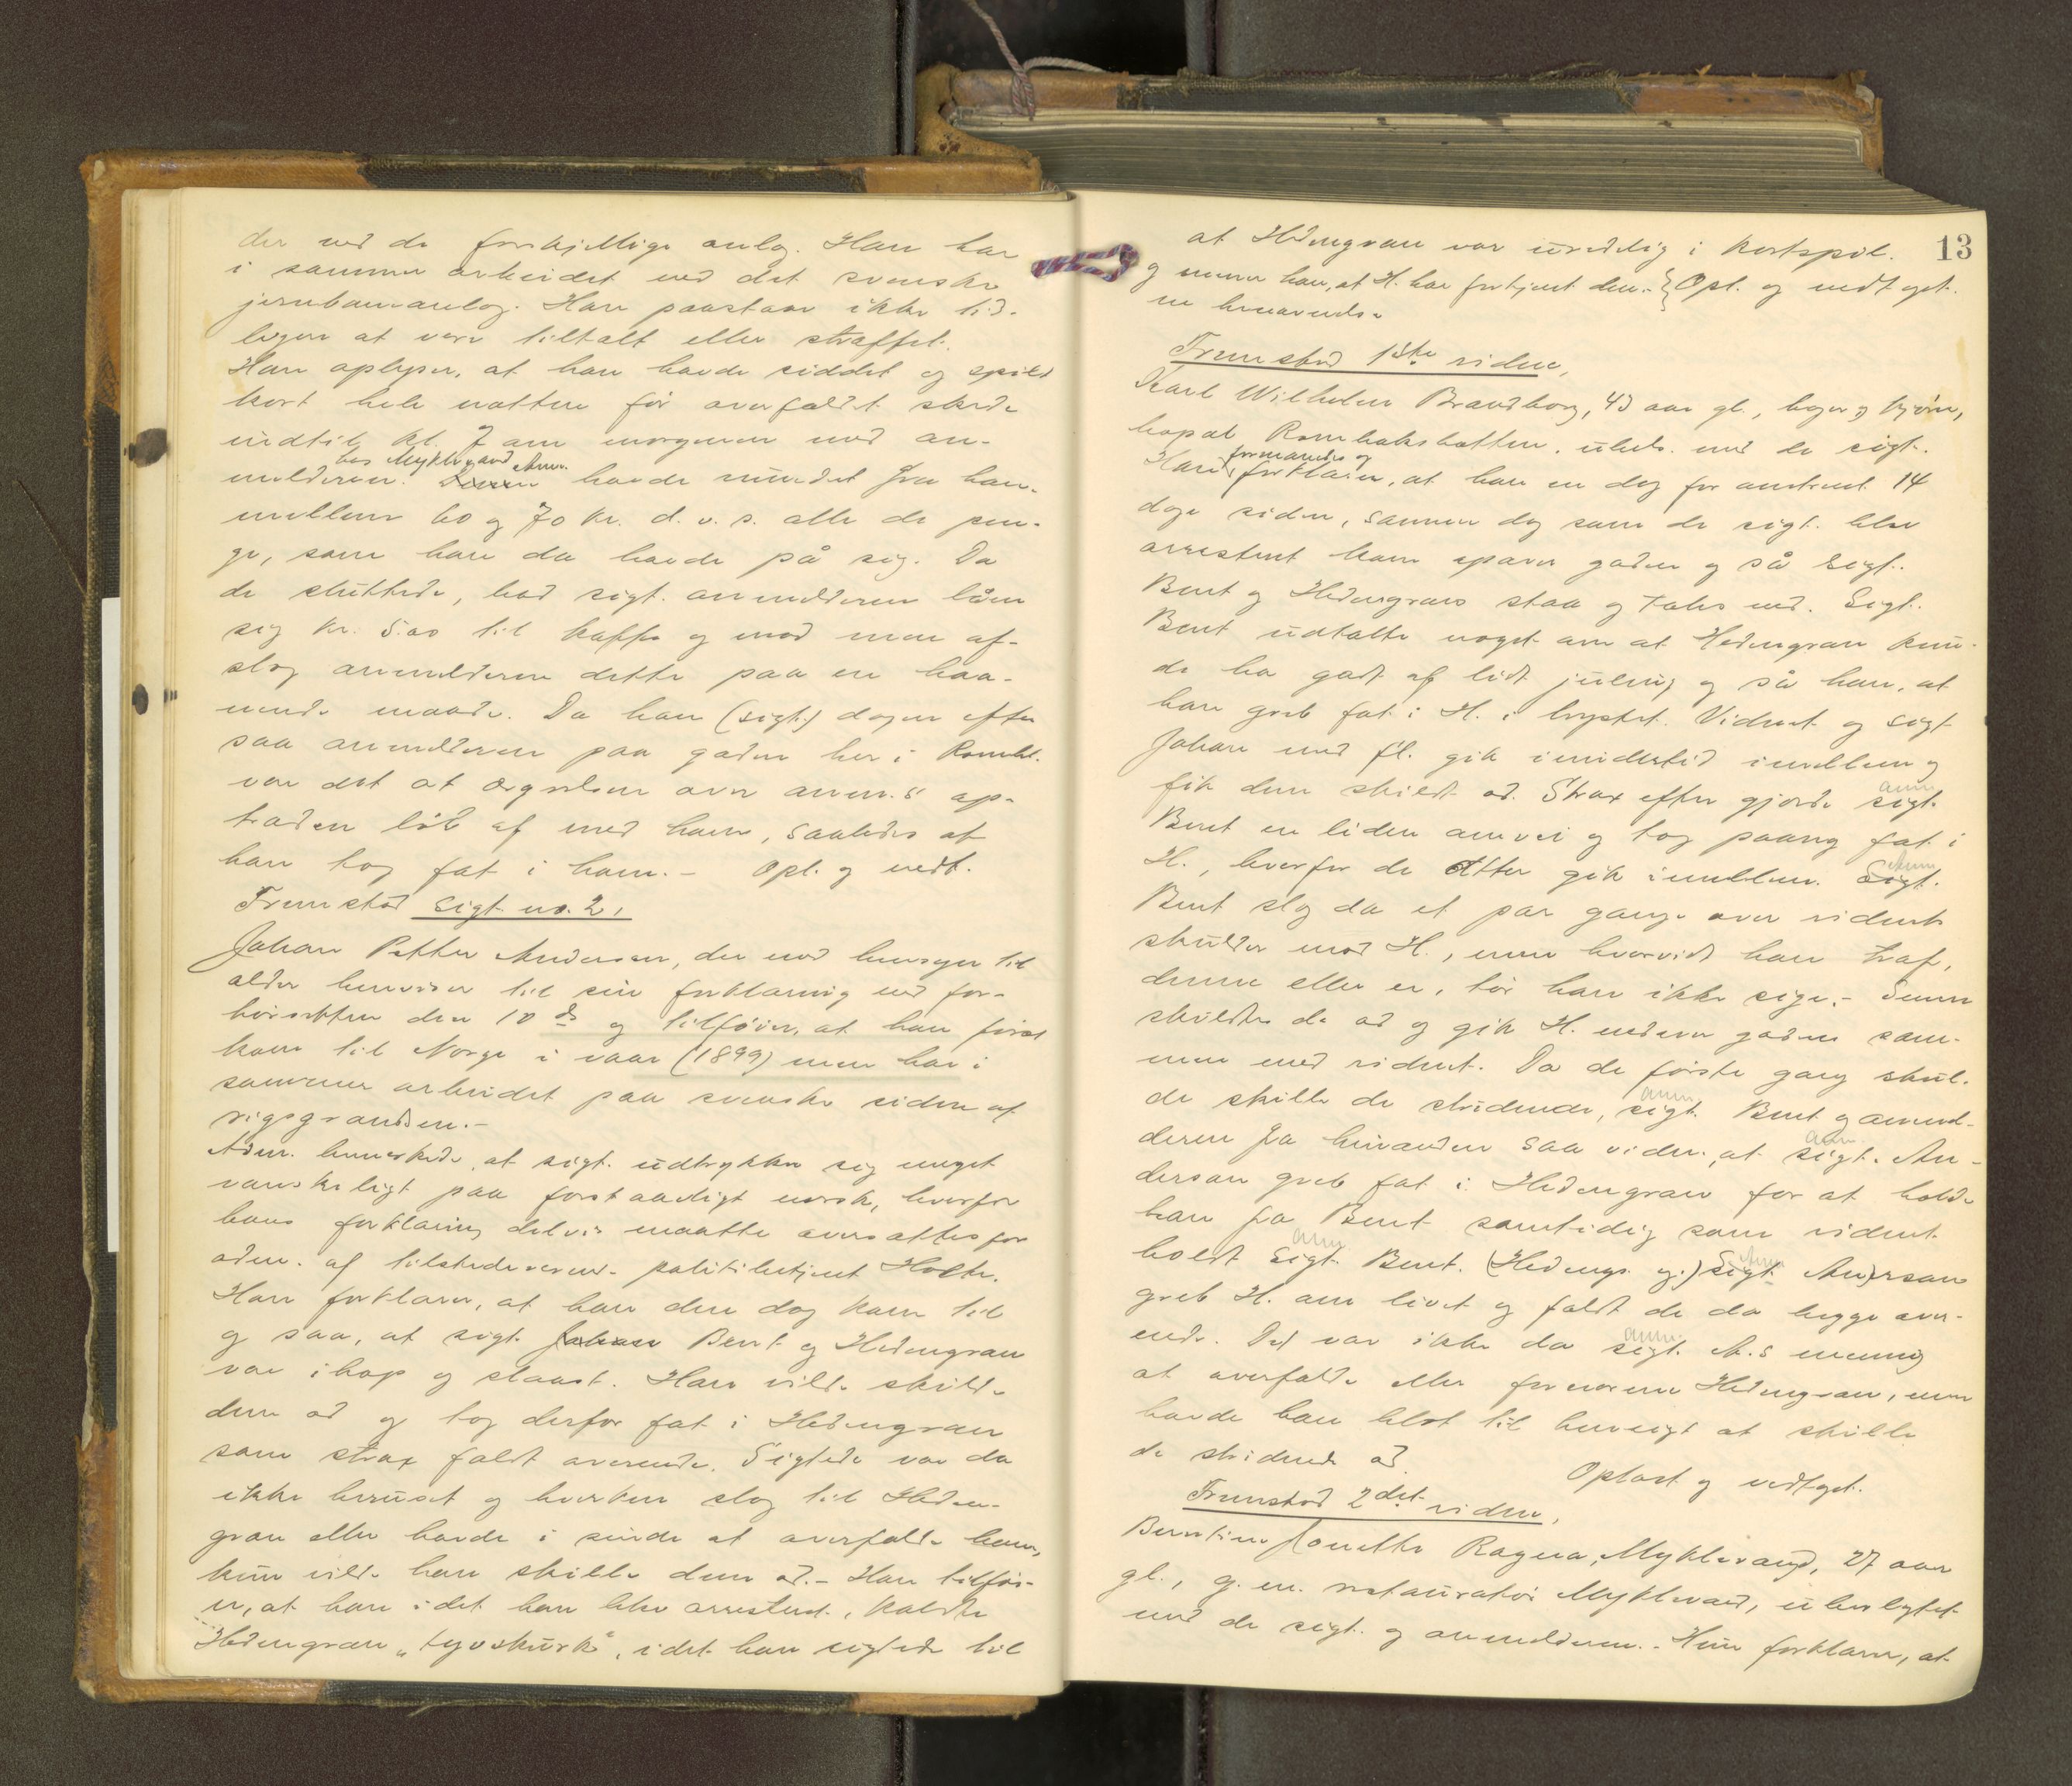 der ved de forskjellige anlæg. Han har
i sommer arbeidet ved det svenske
jernbaneanlæg. Han paastaar ikke tid-
ligere at være tiltalt eller straffet.
Han oplyser, at han havde siddet og spillt
kort hele natten før overfaldet skede
indtil kl. 7 om morgenen med an-
hos Myklevand Anm.
melderen. Denne havde vundet fra ham
mellem 60 og 70 kr. d. v. s. alle de pen-
ge, som han da havde på sig. Da
de sluttede, bad sigt. anmelderen låne
sig kr. 5.00 til kaffe og mad men af-
slog anmelderen dette paa en haa-
nende maade. Da han (sigt.) dagen efter
saa anmelderen paa gaden her i Rombk.
var det at ærgrelsen over anm.s op-
træden løb af med ham, saaledes at
han tog fat i ham. - Opl. og vedt.
Fremstod sigt. no. 2,
Johan Petter Andersen, der med hensyn til
alder henviser til sin forklaring ved for-
hørsretten den 10 ds og tilføier, at han først
kom til Norge i vaar (1899) men har i
sommer arbeidet paa svenske siden af
rigsgrændsen. -
Adm. bemerkede, at sigt. udtrykker sig meget
vanskeligt paa forstaaeligt norsk, hvorfor
hans forklaring delvis maatte oversættes for
adm. af tilstedeværende politibetjent Holte.
Han forklarer, at han den dag kom til
og saa, at sigt. Johan Bent og Hedengran
var ihop og sloast. Han vilde skille
dem ad og tog derfor fat i Hedengran
som strax faldt overende. Sigtede var da
ikke beruset og hverken slog til Heden-
gran eller havde i sinde at overfalde ham,
kun vilde han skille dem ad. - Han tilføi-
er, at han idet han blev arresteret, kaldte
Hedengran "tyvskurk", idet han sigtede til
13
at Hedengran var uredelig i kortspil.
og mener han, at H. har fortjent den- } Opl. og vedtaget.
ne benævnelse
Fremstod 1ste vidne,
Karl Wilhelm Brandborg, 43 aar gl., bopæl Rombaksbotten, ubesl. med de sigt.
formanedes og
Han forklarer, at han en dag for omtrent 14
dage siden, samme dag som de sigt. blev
arresteret kom opover gaden og så sigt.
Bent og Hedengran staa og tales ved. Sigt.
Bent udtalte noget om at Hedengran kun-
de ha godt af lidt juling og så han, at
han greb fat i H. i brystet. Vidnet og sigt
Johan med fl. gik imidlertid imellem og
fik dem skilt ad. Strax efter gjorde sigt.
anm
Bent en liden omvei og tog paany fat i
H., hvorfor de atter gik imellem. Sigt.
anm
Bent slog da et par gange over vidnets
skulder mod H., men hvorvidt han traf,
denne eller ei, tør han ikke sige. - Senere
skildtes de ad og gik H. nedover gaden sam-
men med vidnet. Da de første gang skul-
de skille de stridende, sigt. Bent og anmel-
anm
deren fra hinanden saa vidne, at sigt. An-
anm.
dersen greb fat i Hedengran for at holde
ham fra Bent samtidig som vidnet
holdt sigt. Bent. (Hedengr. og) sigt. Andersen
anm
greb H. om livet og faldt de da begge over-
ende. Det var ikke da sigt. A.s mening
anm.
at overfalde eller fornærme Hedengran, men
havde han blot til hensigt at skille
de stridende ad.
Oplæst og vedtaget.
Fremstod 2det vidne,
Berntine Jonette Ragna Myklevand, 27 aar
gl., g. m. restauratør Myklevand, ubeslægtet
med de sigt. og anmelderen. - Hun forklarer, at